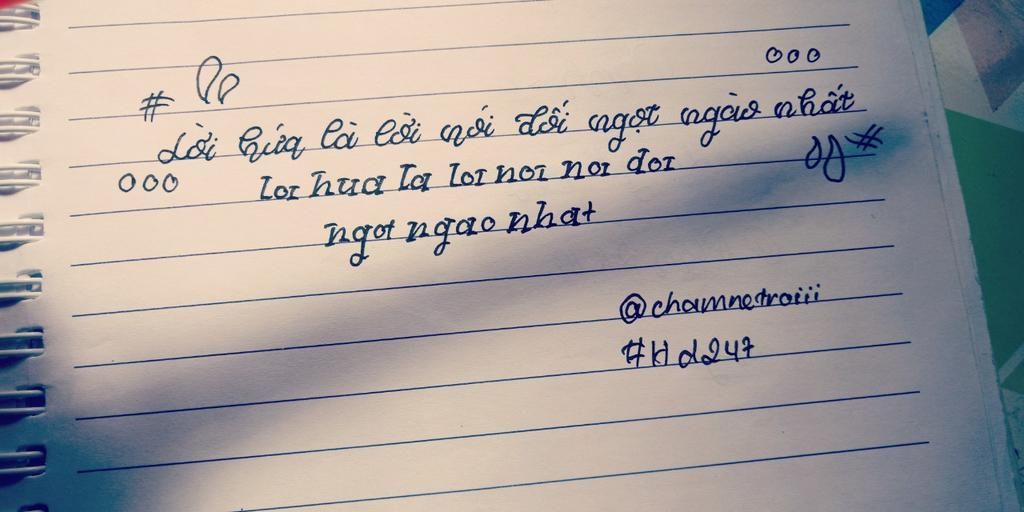 Lời hứa là lời nói dối ngọt ngào nhất
loi hua la loi noi noi doi
ngot ngao nhat
@chamnetraiii
#Hd247